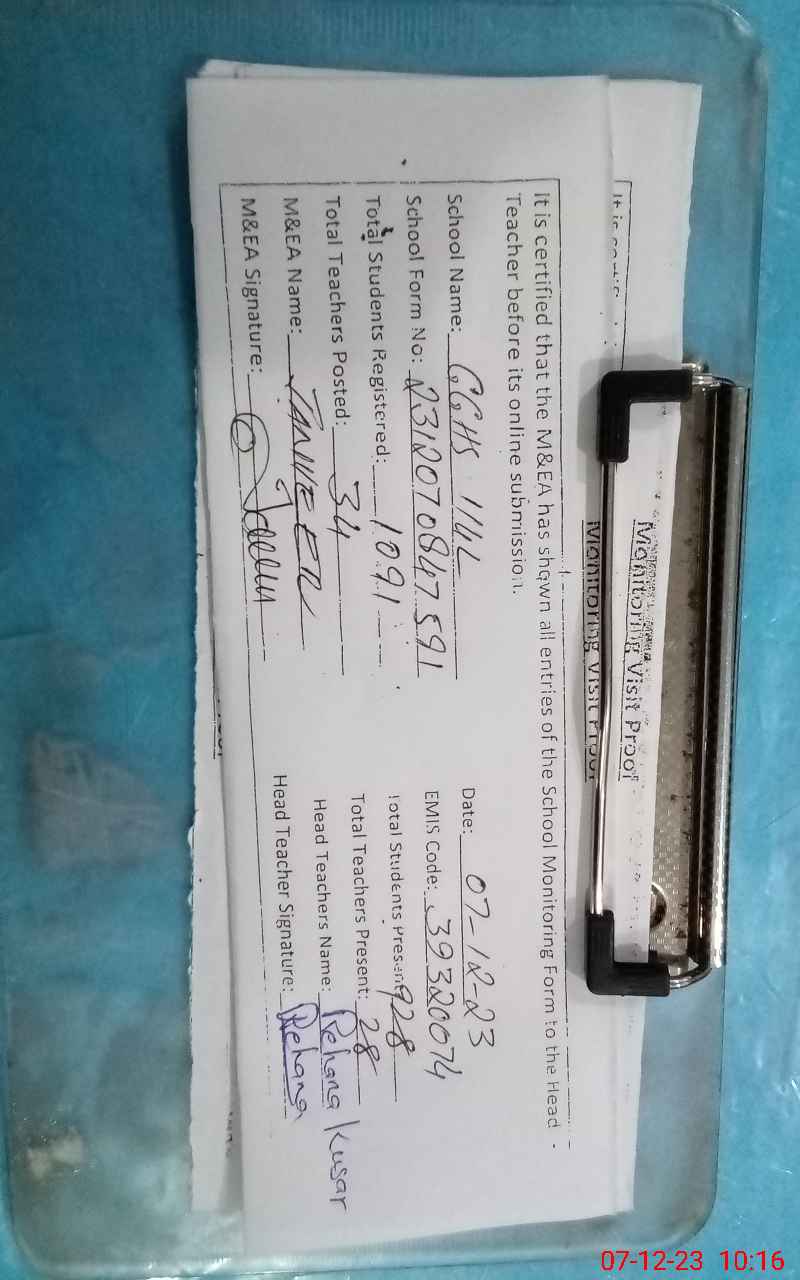 Monitoring Visit Proof
Monitoring Visit Proof
It is certified that the M&EA has shown all entries of the School Monitoring Form to the Head
Teacher before its online submission.
School Name: GGHS 114L Date: 07-12-23
School Form No: 2312070847591 EMIS Code: 39320074
Total Students Registered: 1091 Total Students Present 928
Total Teachers Posted: 34 Total Teachers Present: 28
M&EA Name: TANVEER Head Teachers Name: Rehana Kusar
M&EA Signature: Head Teacher Signature: Rehana
07-12-23 10:16